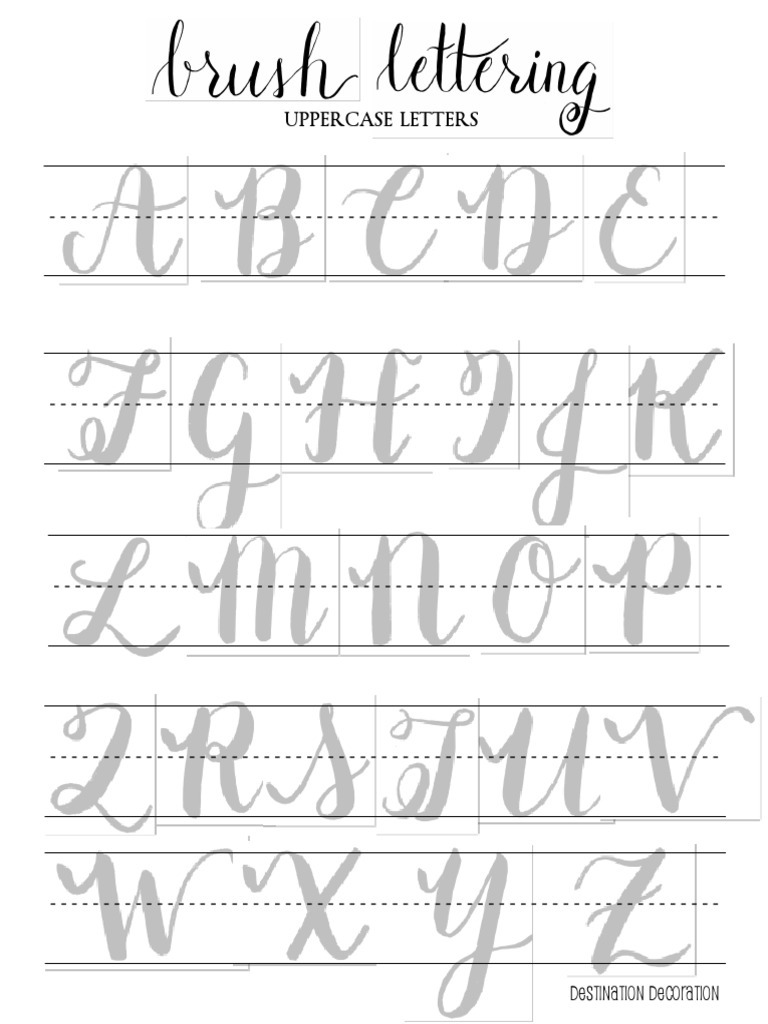 brush lettering
UPPERCASE LETTERS
A B C D E
F G H I J K
L M N O P
Q R S T U V
W X Y Z
DESTINATION DECORATION